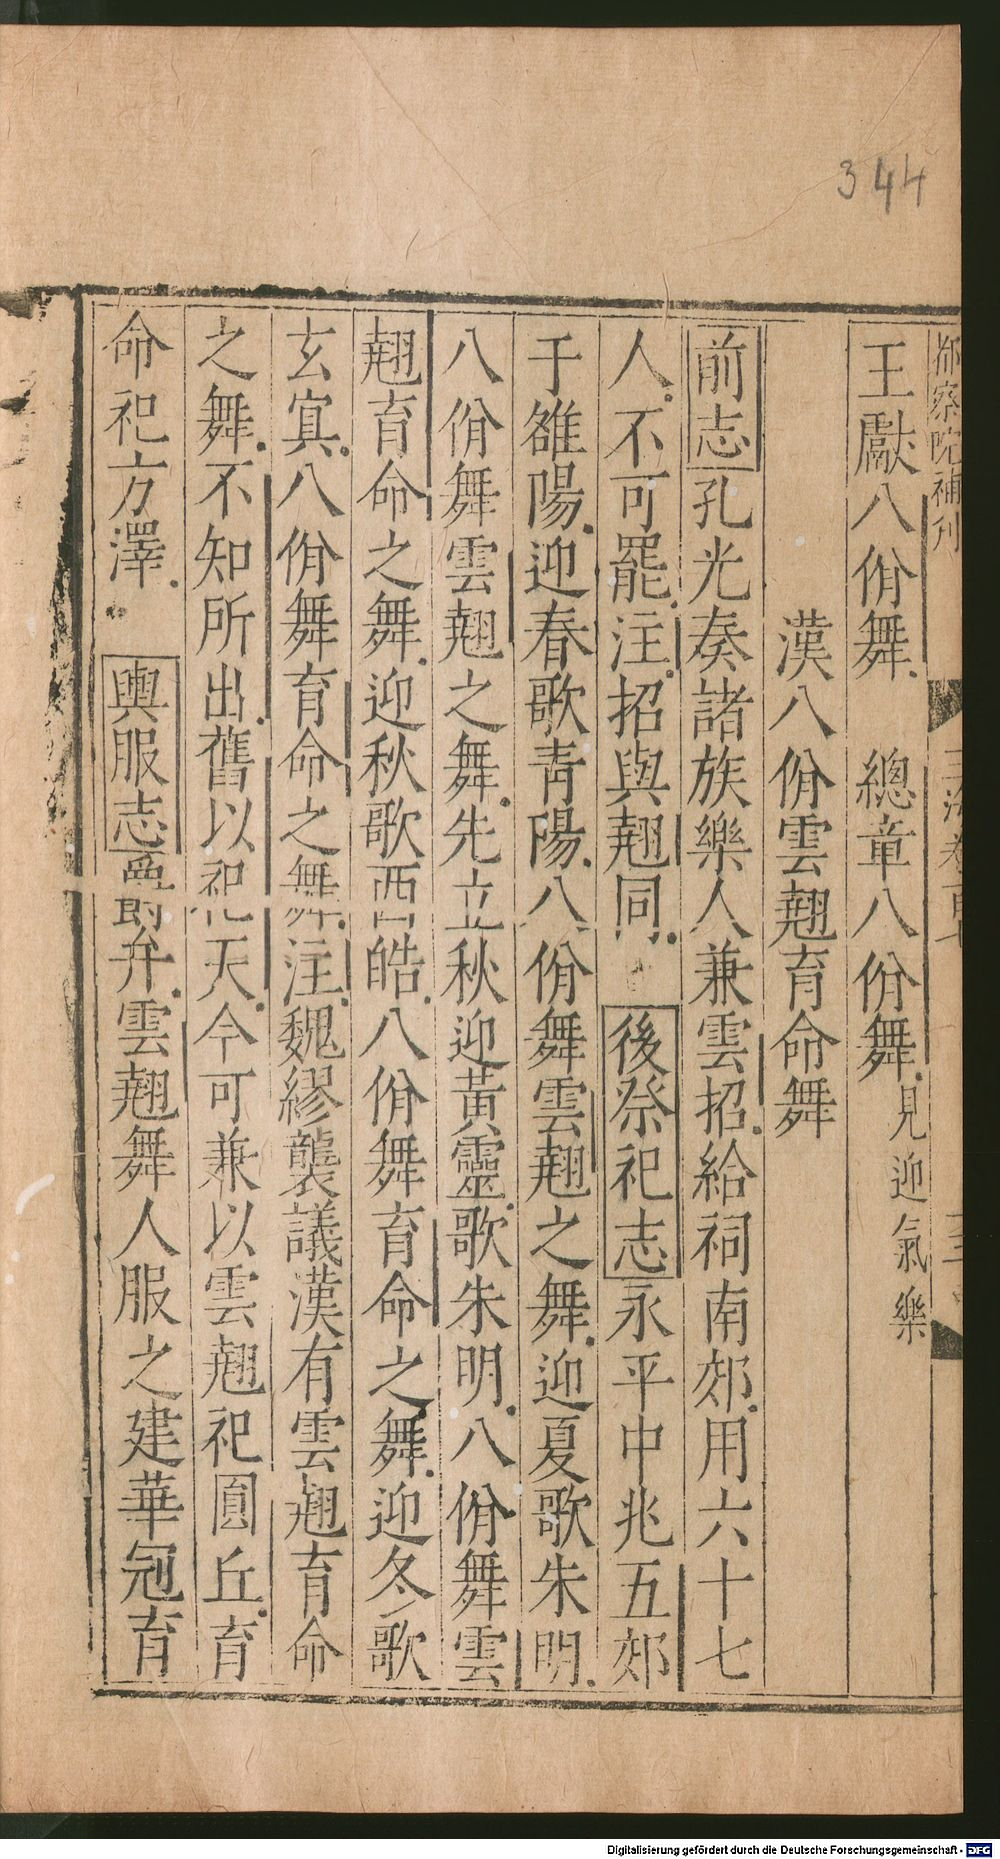 344
都察院補刊
王獻八佾舞 總章八佾舞見迎氣樂
漢八佾雲翹育命舞
前志孔光奏諸族樂人兼雲招給祠南郊用六十七
人不可罷注招與翹同 後祭祀志永平中兆五郊
于雒陽迎春歌青陽八佾舞雲翹之舞迎夏歌朱明
八佾舞雲翹之舞先立秋迎黃靈歌朱明八佾舞雲
翹育命之舞迎秋歌西皓八佾舞育命之舞迎冬歌
玄冥八佾舞育命之舞注魏繆襲議漢有雲翹育命
之舞不知所出舊以祀天今可兼以雲翹祀圓丘育
命祀方澤 輿服志爵弁雲翹舞人服之建華冠育
Digitalisierung gefördert durch die Deutsche Forschungsgemeinschaft - DFG